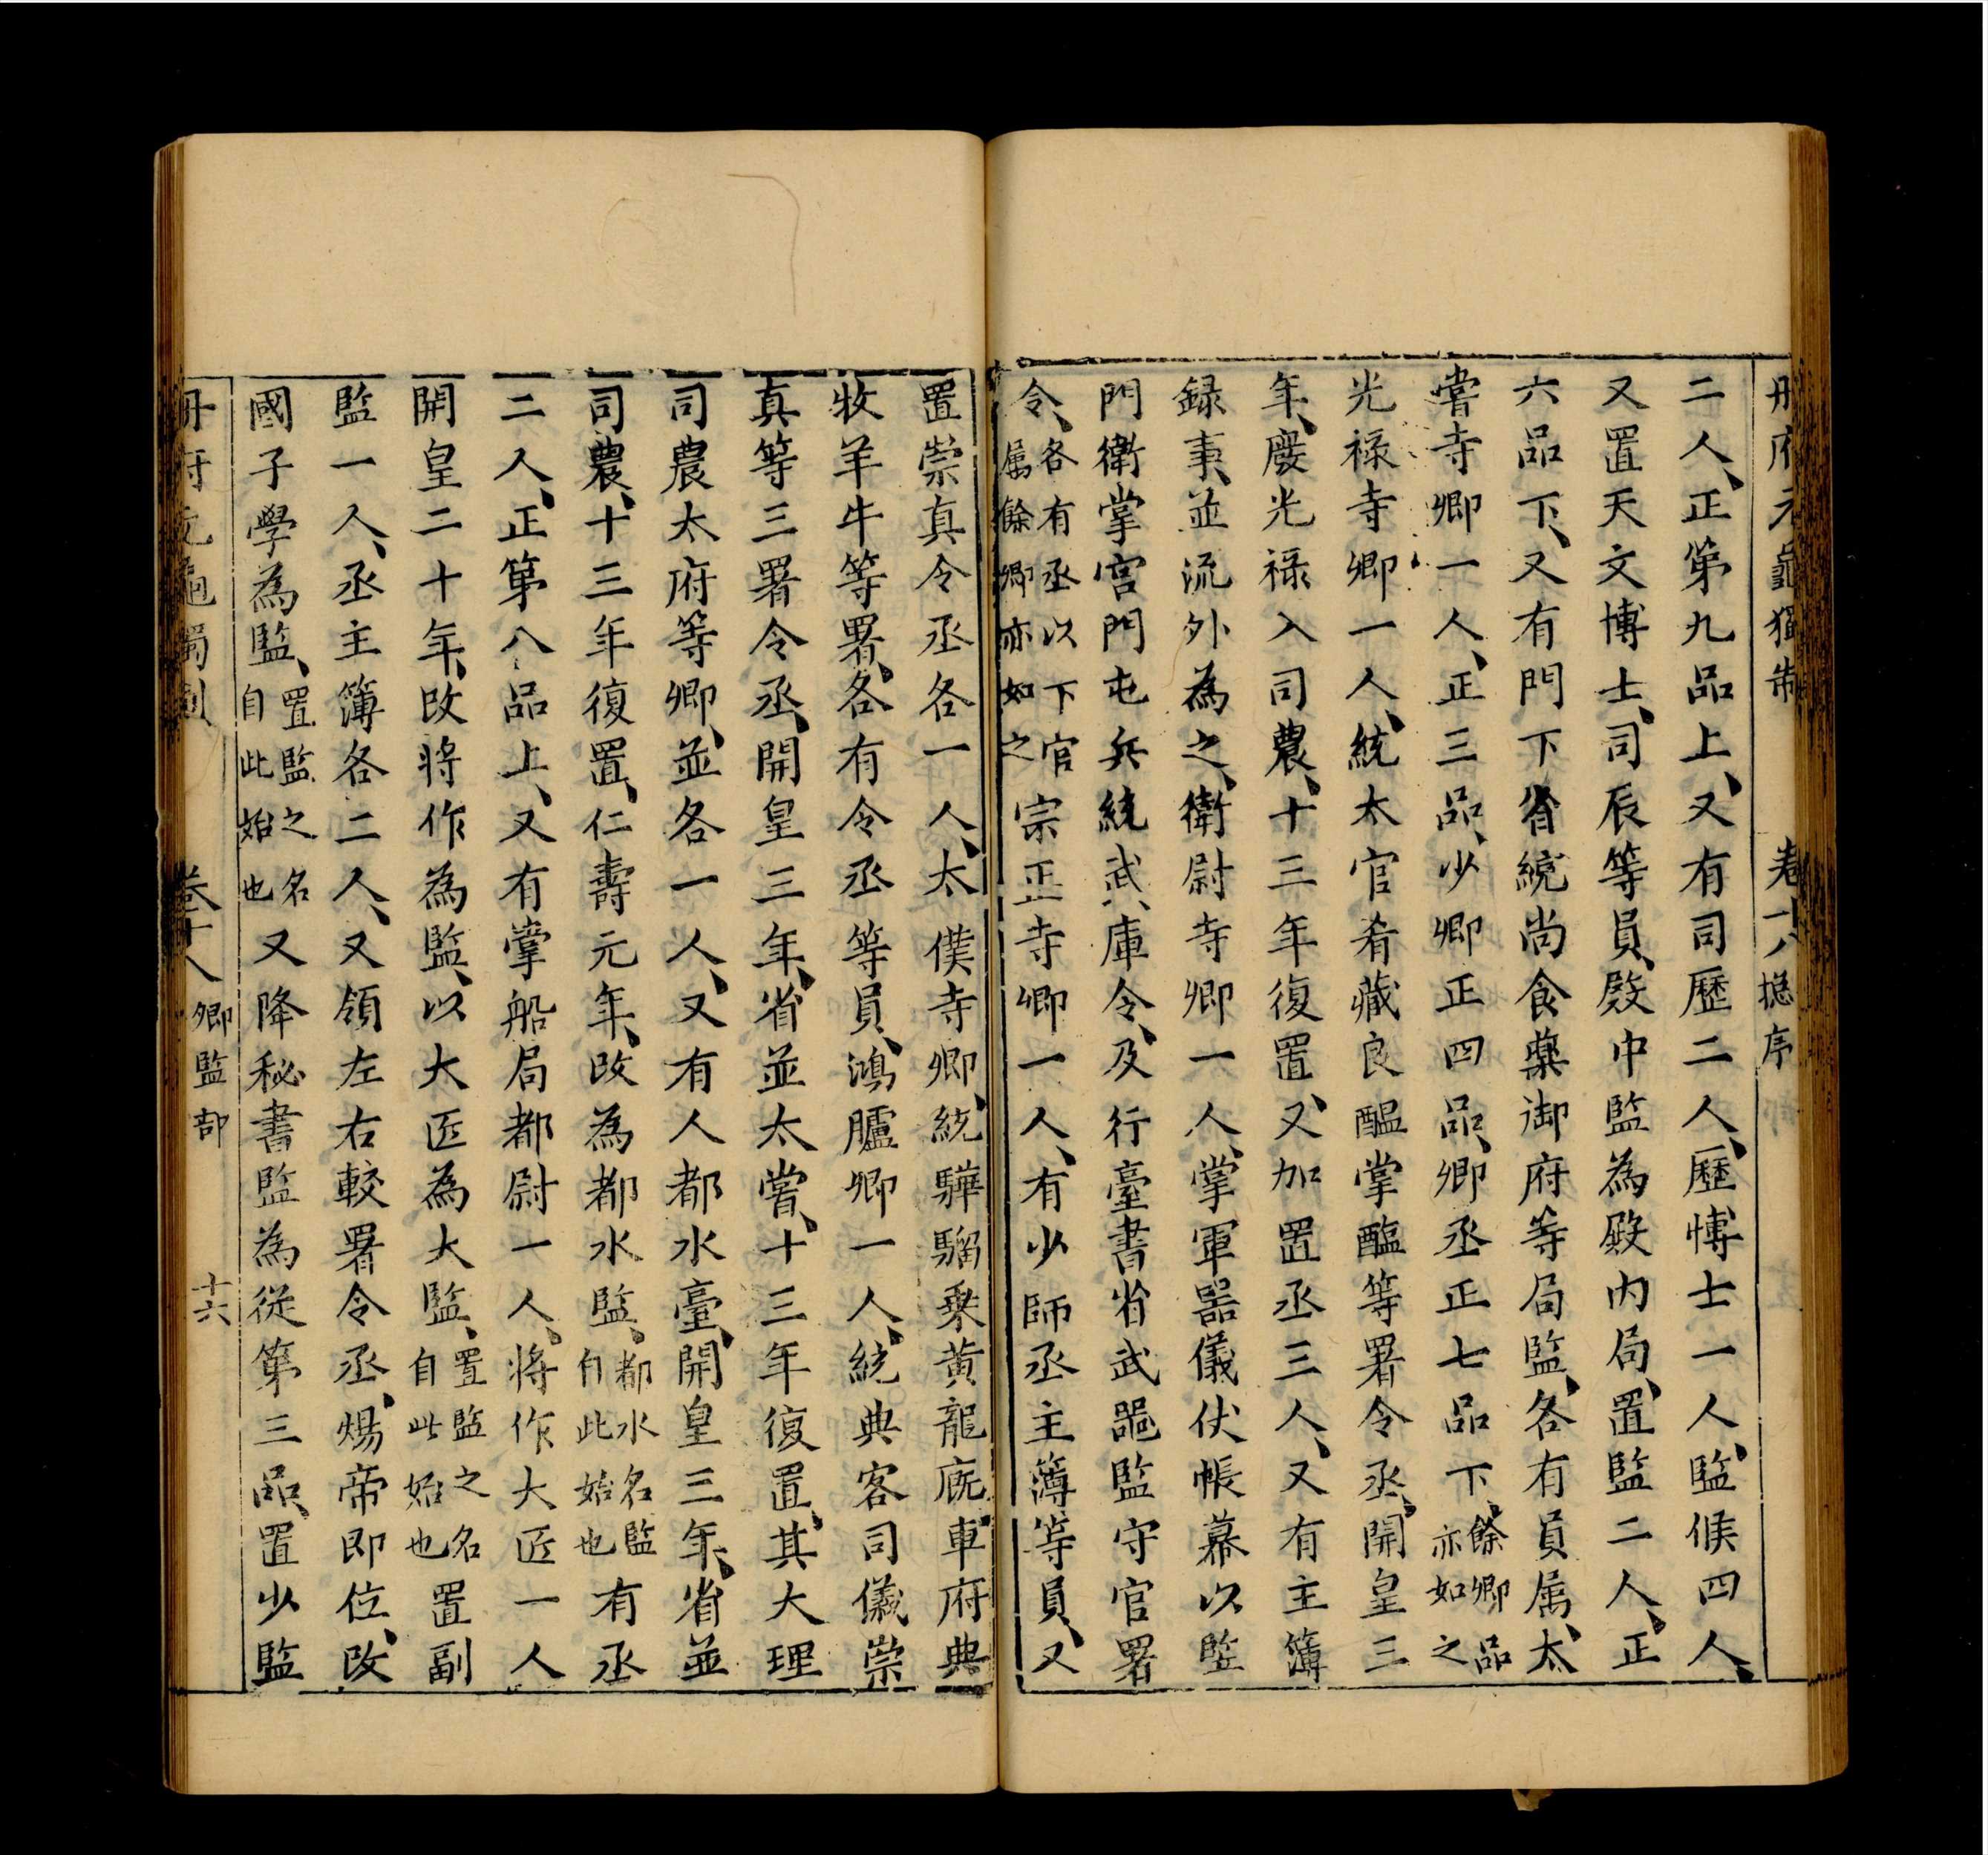 冊府元龜獨制 卷十八 總序
二人、正第九品上、又有司歷二人、歷愽士一人、監候四人、
又置天文博士、司辰等員、殿中監為殿内局、置監二人、正
六品下、又有門下省統尚食藥御府等局監、各有員属、太
嘗寺卿一人、正三品、少卿正四品、卿丞正七品下、餘卿品亦如之
光禄寺卿一人、統太官肴藏良醖掌醢等署令丞、開皇三
年、廢光禄入司農、十三年復置、又加置丞三人、又有主簿
録事、並流外為之、衛尉寺卿一人、掌軍器儀伏帳幕以監
門衛掌宮門屯兵統武庫令、及行臺書省武器監守官署
令、各有丞以下官属餘卿亦如之宗正寺卿一人、有少師丞主簿等員、又
置崇真令丞各一人、太僕寺卿、統驊騮乗黄龍廐車府典
牧羊牛等署、各有令丞等員、鴻臚卿一人、統典客司儀崇
真等三署令丞、開皇三年、省並太嘗、十三年復置、其大理
司農太府等卿、並各一人、又有人都水臺、開皇三年、省並
司農、十三年復置、仁壽元年、改為都水監、都水名監自此始也有丞
二人、正第八品上、又有掌船局都尉一人、將作大匠一人
開皇二十年、改將作為監、以大匠為大監、置監之名自此始也置副
監一人、丞主簿各二人、又領左右較署令丞、煬帝即位、改
國子學為監、置監之名自此始也又降秘書監為從第三品、置少監
冊府元龜獨制 卷十八 卿監部 十六